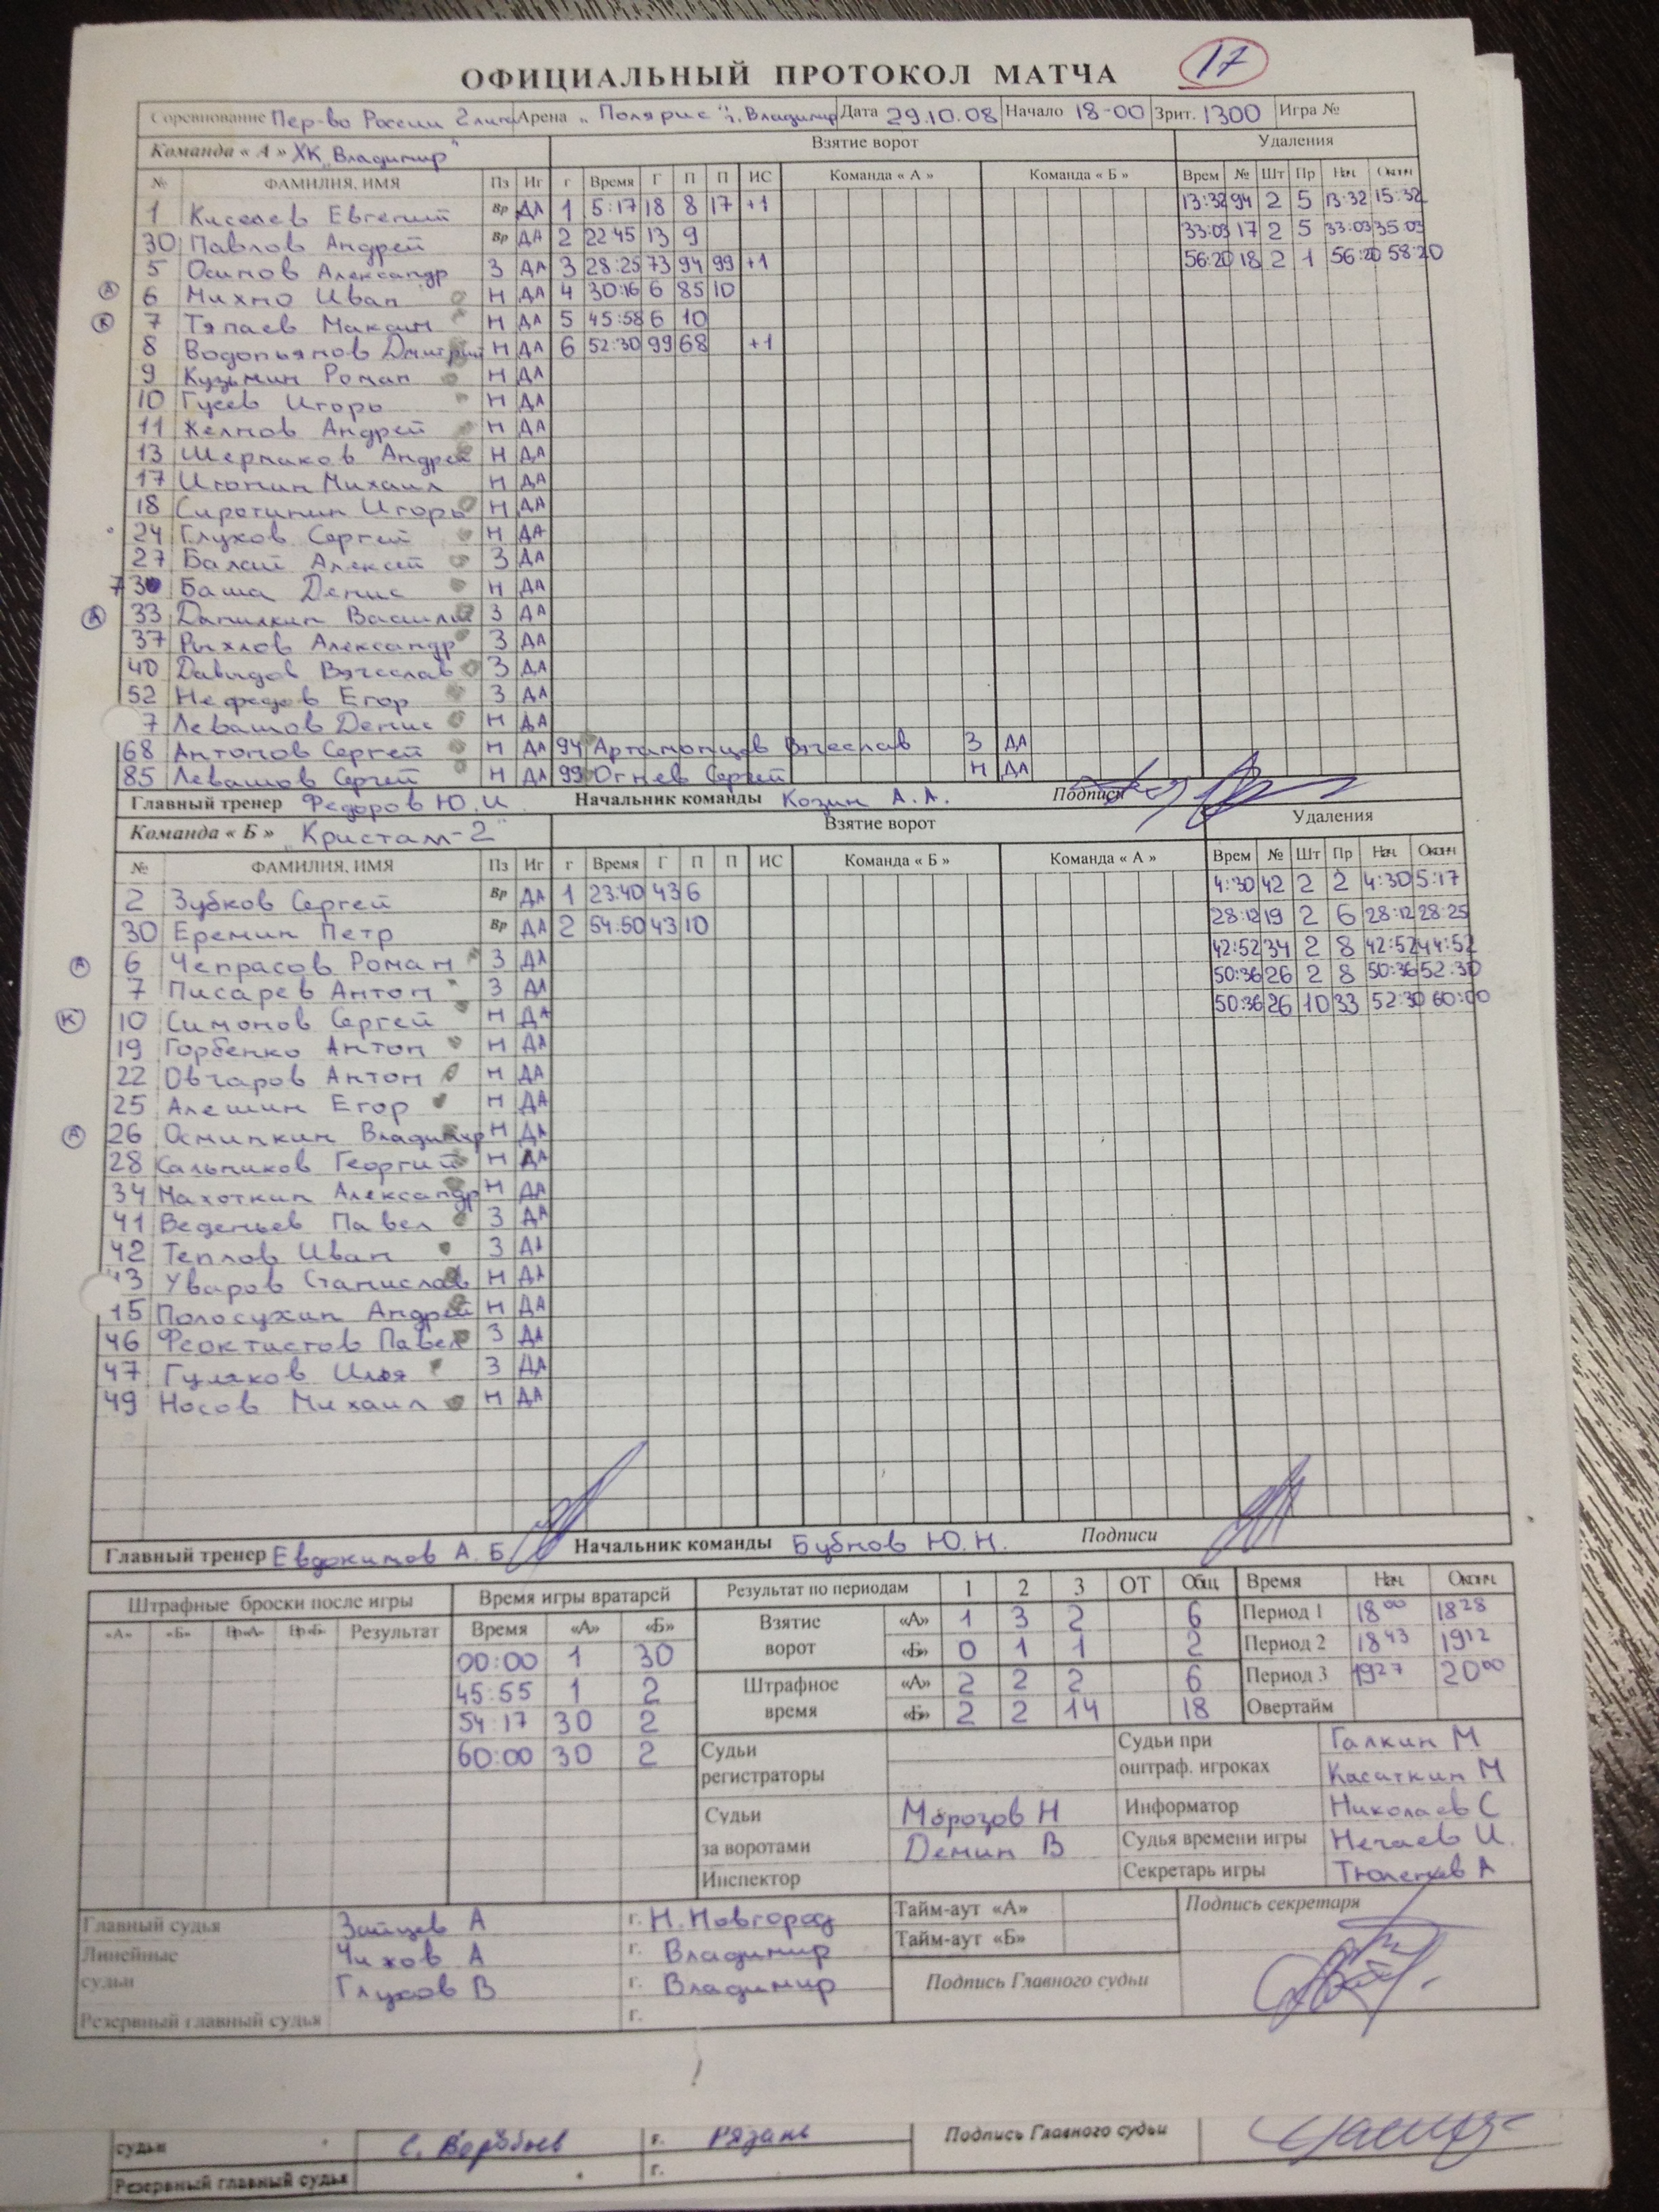 17
ОФИЦИАЛЬНЫЙ ПРОТОКОЛ МАТЧА
Соревнование Пер-во России 2 лига Арена „Полярис" г. Владимир Дата 29.10.08 Начало 18-00 Зрит. 1300 Игра №
Команда « А » ХК „Владимир" Взятие ворот Удаления
№ ФАМИЛИЯ, ИМЯ Пз Иг г Время Г П П ИС Команда « А » Команда « Б » Врем № Шт Пр Нач. Оконч
1 Киселев Евгений Вр ДА 1 5:17 18 8 17 +1 13:32 94 2 5 13:32 15:32
30 Павлов Андрей Вр ДА 2 22:45 13 9 33:03 17 2 5 33:03 35:03
5 Осипов Александр З ДА 3 28:25 73 94 99 +1 56:20 18 2 1 56:20 58:20
А 6 Михно Иван Н ДА 4 30:16 6 85 10
К 7 Тяпаев Максим Н ДА 5 45:58 6 10
8 Водопьянов Дмитрий Н ДА 6 52:30 99 68 +1
9 Кузьмин Роман Н ДА
10 Гусев Игорь Н ДА
11 Желнов Андрей Н ДА
13 Шермаков Андрей Н ДА
17 Игонин Михаил Н ДА
18 Сиротинин Игорь Н ДА
24 Глухов Сергей Н ДА
27 Балай Алексей З ДА
73 Баша Денис Н ДА
А 33 Данилкин Василий З ДА
37 Рыхлов Александр З ДА
40 Давыдов Вячеслав З ДА
52 Нефедов Егор З ДА
7 Левашов Денис Н ДА
68 Антонов Сергей Н ДА 94 Артамонцев Вячеслав З ДА
85 Левашов Сергей Н ДА 99 Огнев Сергей Н ДА
Главный тренер Федоров Ю.И. Начальник команды Козин А.А. Подписи
Команда « Б » „Кристалл-2" Взятие ворот Удаления
№ ФАМИЛИЯ, ИМЯ Пз Иг г Время Г П П ИС Команда « Б » Команда « А » Врем № Шт Пр Нач. Оконч
2 Зубков Сергей Вр ДА 1 23:40 43 6 4:30 42 2 2 4:30 5:17
30 Еремин Петр Вр ДА 2 54:50 43 10 28:12 19 2 6 28:12 28:25
А 6 Чепрасов Роман З ДА 42:52 34 2 8 42:52 44:52
7 Писарев Антон З ДА 50:36 26 2 8 50:36 52:30
К 10 Симонов Сергей Н ДА 50:36 26 10 33 52:30 60:00
19 Горбенко Антон Н ДА
22 Овчаров Антон Н ДА
25 Алешин Егор Н ДА
А 26 Осмипкин Владимир Н ДА
28 Сальников Георгий Н ДА
34 Махоткин Александр Н ДА
41 Веденьев Павел З ДА
42 Теплов Иван З ДА
43 Уваров Станислав Н ДА
15 Полосухин Андрей Н ДА
46 Феоктистов Павел З ДА
47 Гуляков Илья З ДА
49 Носов Михаил Н ДА
Главный тренер Евдокимов А.Б. Начальник команды Бубнов Ю.Н. Подписи
Штрафные броски после игры Время игры вратарей Результат по периодам 1 2 3 ОТ Общ Время Нач. Оконч.
«А» «Б» Вр«А» Вр«Б» Результат Время «А» «Б» Взятие ворот «А» 1 3 2 6 Период 1 18 00 18 28
00:00 1 30 «Б» 0 1 1 2 Период 2 18 43 19 12
45:55 1 2 Штрафное время «А» 2 2 2 6 Период 3 19 27 20 00
54:17 30 2 «Б» 2 2 14 18 Овертайм
60:00 30 2 Судьи регистраторы Судьи при оштраф. игроках Галкин М
Касаткин М
Судьи за воротами Морозов Н Информатор Николаев С
Демин В Судья времени игры Нечаев И.
Инспектор Секретарь игры Тюленев А
Главный судья Зайцев А г. Н.Новгород Тайм-аут «А» Подпись секретаря
Линейные Чихов А г. Владимир Тайм-аут «Б»
судьи Глухов В г. Владимир Подпись Главного судьи
Резервный главный судья г.
судьи С. Воробьев г. Рязань Подпись Главного судьи
Резервный главный судья г.